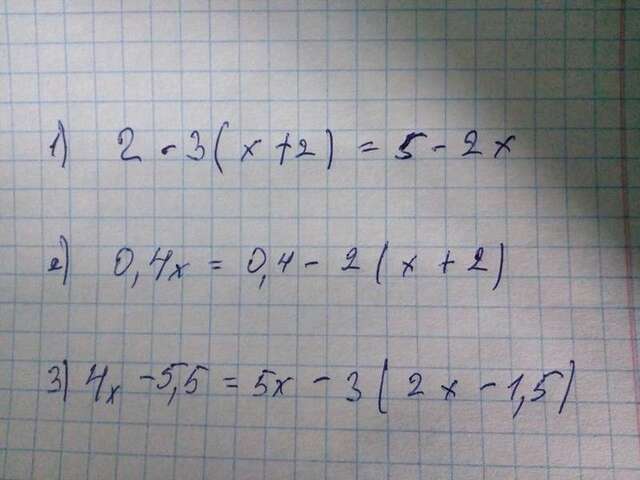 1) 2 - 3(x+2) = 5 - 2x
2) 0,4x = 0,4 - 2(x + 2)
3) 4x - 5,5 = 5x - 3(2x - 1,5)